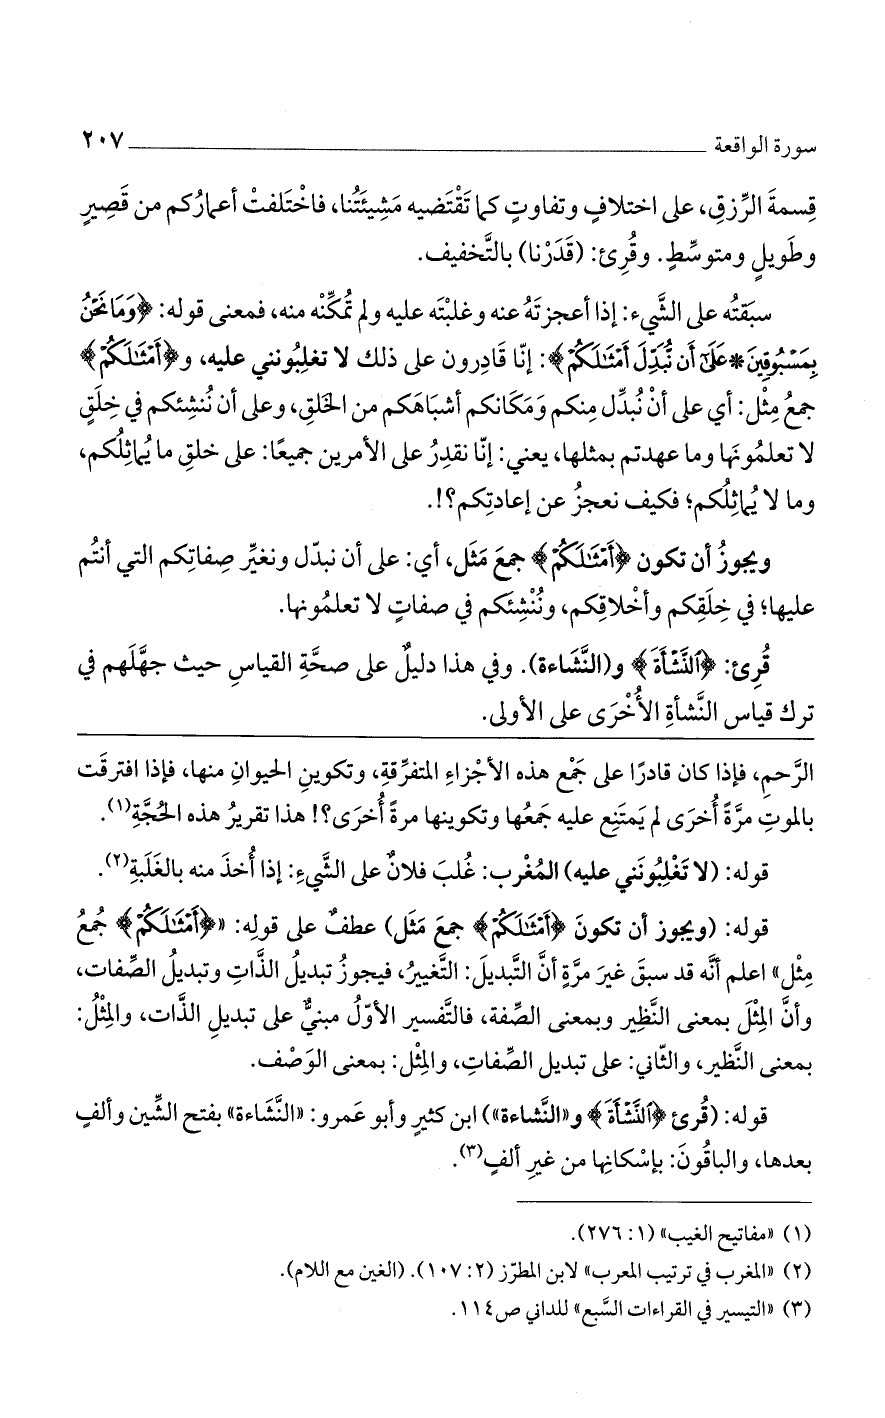 سورة الواقعة ــــــــــــــــ ٢٠٧
قِسمةَ الرِّزقِ، على اختلافٍ وتفاوتٍ كما تَقْتَضيه مَشِيئَتُنا، فاخْتَلفتْ أعمارُكم من قَصِيرٍ
وطَويلٍ ومتوسِّطٍ. وقُرِئ: (قَدَرْنا) بالتَّخفيف.
سبَقتُه على الشَّيء: إذا أعجزتَهُ عنه وغلبْتَه عليه ولم تُمكِّنْه منه، فمعنى قوله: ﴿وَمَا نَحْنُ
بِمَسْبُوقِينَ * عَلَىٰٓ أَن نُّبَدِّلَ أَمْثَـٰلَكُمْ﴾: إنّا قَادِرون على ذلك لا تغلِبُونني عليه، و﴿أَمْثَـٰلَكُمْ﴾
جمعُ مِثْل: أي على أنْ نُبدِّل مِنكم وَمَكَانكم أشبَاهَكم من الخَلقِ، وعلى أن نُنشِئكم في خِلَقٍ
لا تعلمُونَها وما عهدتم بمثلها، يعني: إنّا نقدِرُ على الأمرين جميعًا: على خلقِ ما يُماثِلُكم،
وما لا يُماثِلُكم؛ فكيف نعجزُ عن إعادتِكم؟!.
ويجوزُ أن تكون ﴿أَمْثَـٰلَكُمْ﴾ جمعَ مَثَل، أي: على أن نبدّل ونغيِّر صِفاتِكم التي أنتُم
عليها؛ في خِلَقِكم وأخْلاقِكم، ونُنْشِئَكم في صفاتٍ لا تعلمُونها.
قُرِئ: ﴿ٱلنَّشْأَةَ﴾ و(النَّشَاءة). وفي هذا دليلٌ على صحَّةِ القياسِ حيث جهَّلَهم في
ترك قياس النَّشأةِ الأُخْرَى على الأولى.
الرَّحم، فإذا كان قادرًا على جَمْع هذه الأجْزاءِ المتفرِّقةِ، وتكوينِ الحيوانِ منها، فإذا افترقَت
بالموتِ مرَّةً أُخرَى لم يَمتَنِع عليه جَمعُها وتكوينها مرةً أُخرَى؟! هذا تقريرُ هذه الحُجَّةِ(١).
قوله: (لا تَغْلِبُونَني عليه) المُغْرب: غُلبَ فلانٌ على الشَّيءِ: إذا أُخذَ منه بالغَلَبَةِ(٢).
قوله: (ويجوز أن تكونَ ﴿أَمْثَـٰلَكُمْ﴾ جمعَ مَثَل) عطفٌ على قولِه: «﴿أَمْثَـٰلَكُمْ﴾ جُمعُ
مِثْل» اعلم أنَّه قد سبقَ غيرَ مرَّةٍ أنَّ التَّبديلَ: التَّغييرُ، فيجوزُ تبديلُ الذَّاتِ وتبديلُ الصِّفات،
وأنَّ المِثْلَ بمعنى النَّظِير وبمعنى الصِّفة، فالتَّفسير الأوّلُ مبنيٌّ على تبديلِ الذَّات، والمِثْلُ:
بمعنى النَّظير، والثّاني: على تبديل الصِّفاتِ، والمِثْل: بمعنى الوَصْف.
قوله: (قُرئ ﴿ٱلنَّشْأَةَ﴾ و«النَّشاءة») ابن كثيرٍ وأبو عَمرو: «النَّشَاءة» بفتح الشِّين وألفٍ
بعدها، والباقُونَ: بإسْكانِها من غيرِ ألفٍ(٣).
(١) «مفاتيح الغيب» (١: ٢٧٦).
(٢) «المغرب في ترتيب المعرب» لابن المطرّز (٢: ١٠٧). (الغين مع اللام).
(٣) «التيسير في القراءات السَّبع» للداني ص١١٤.